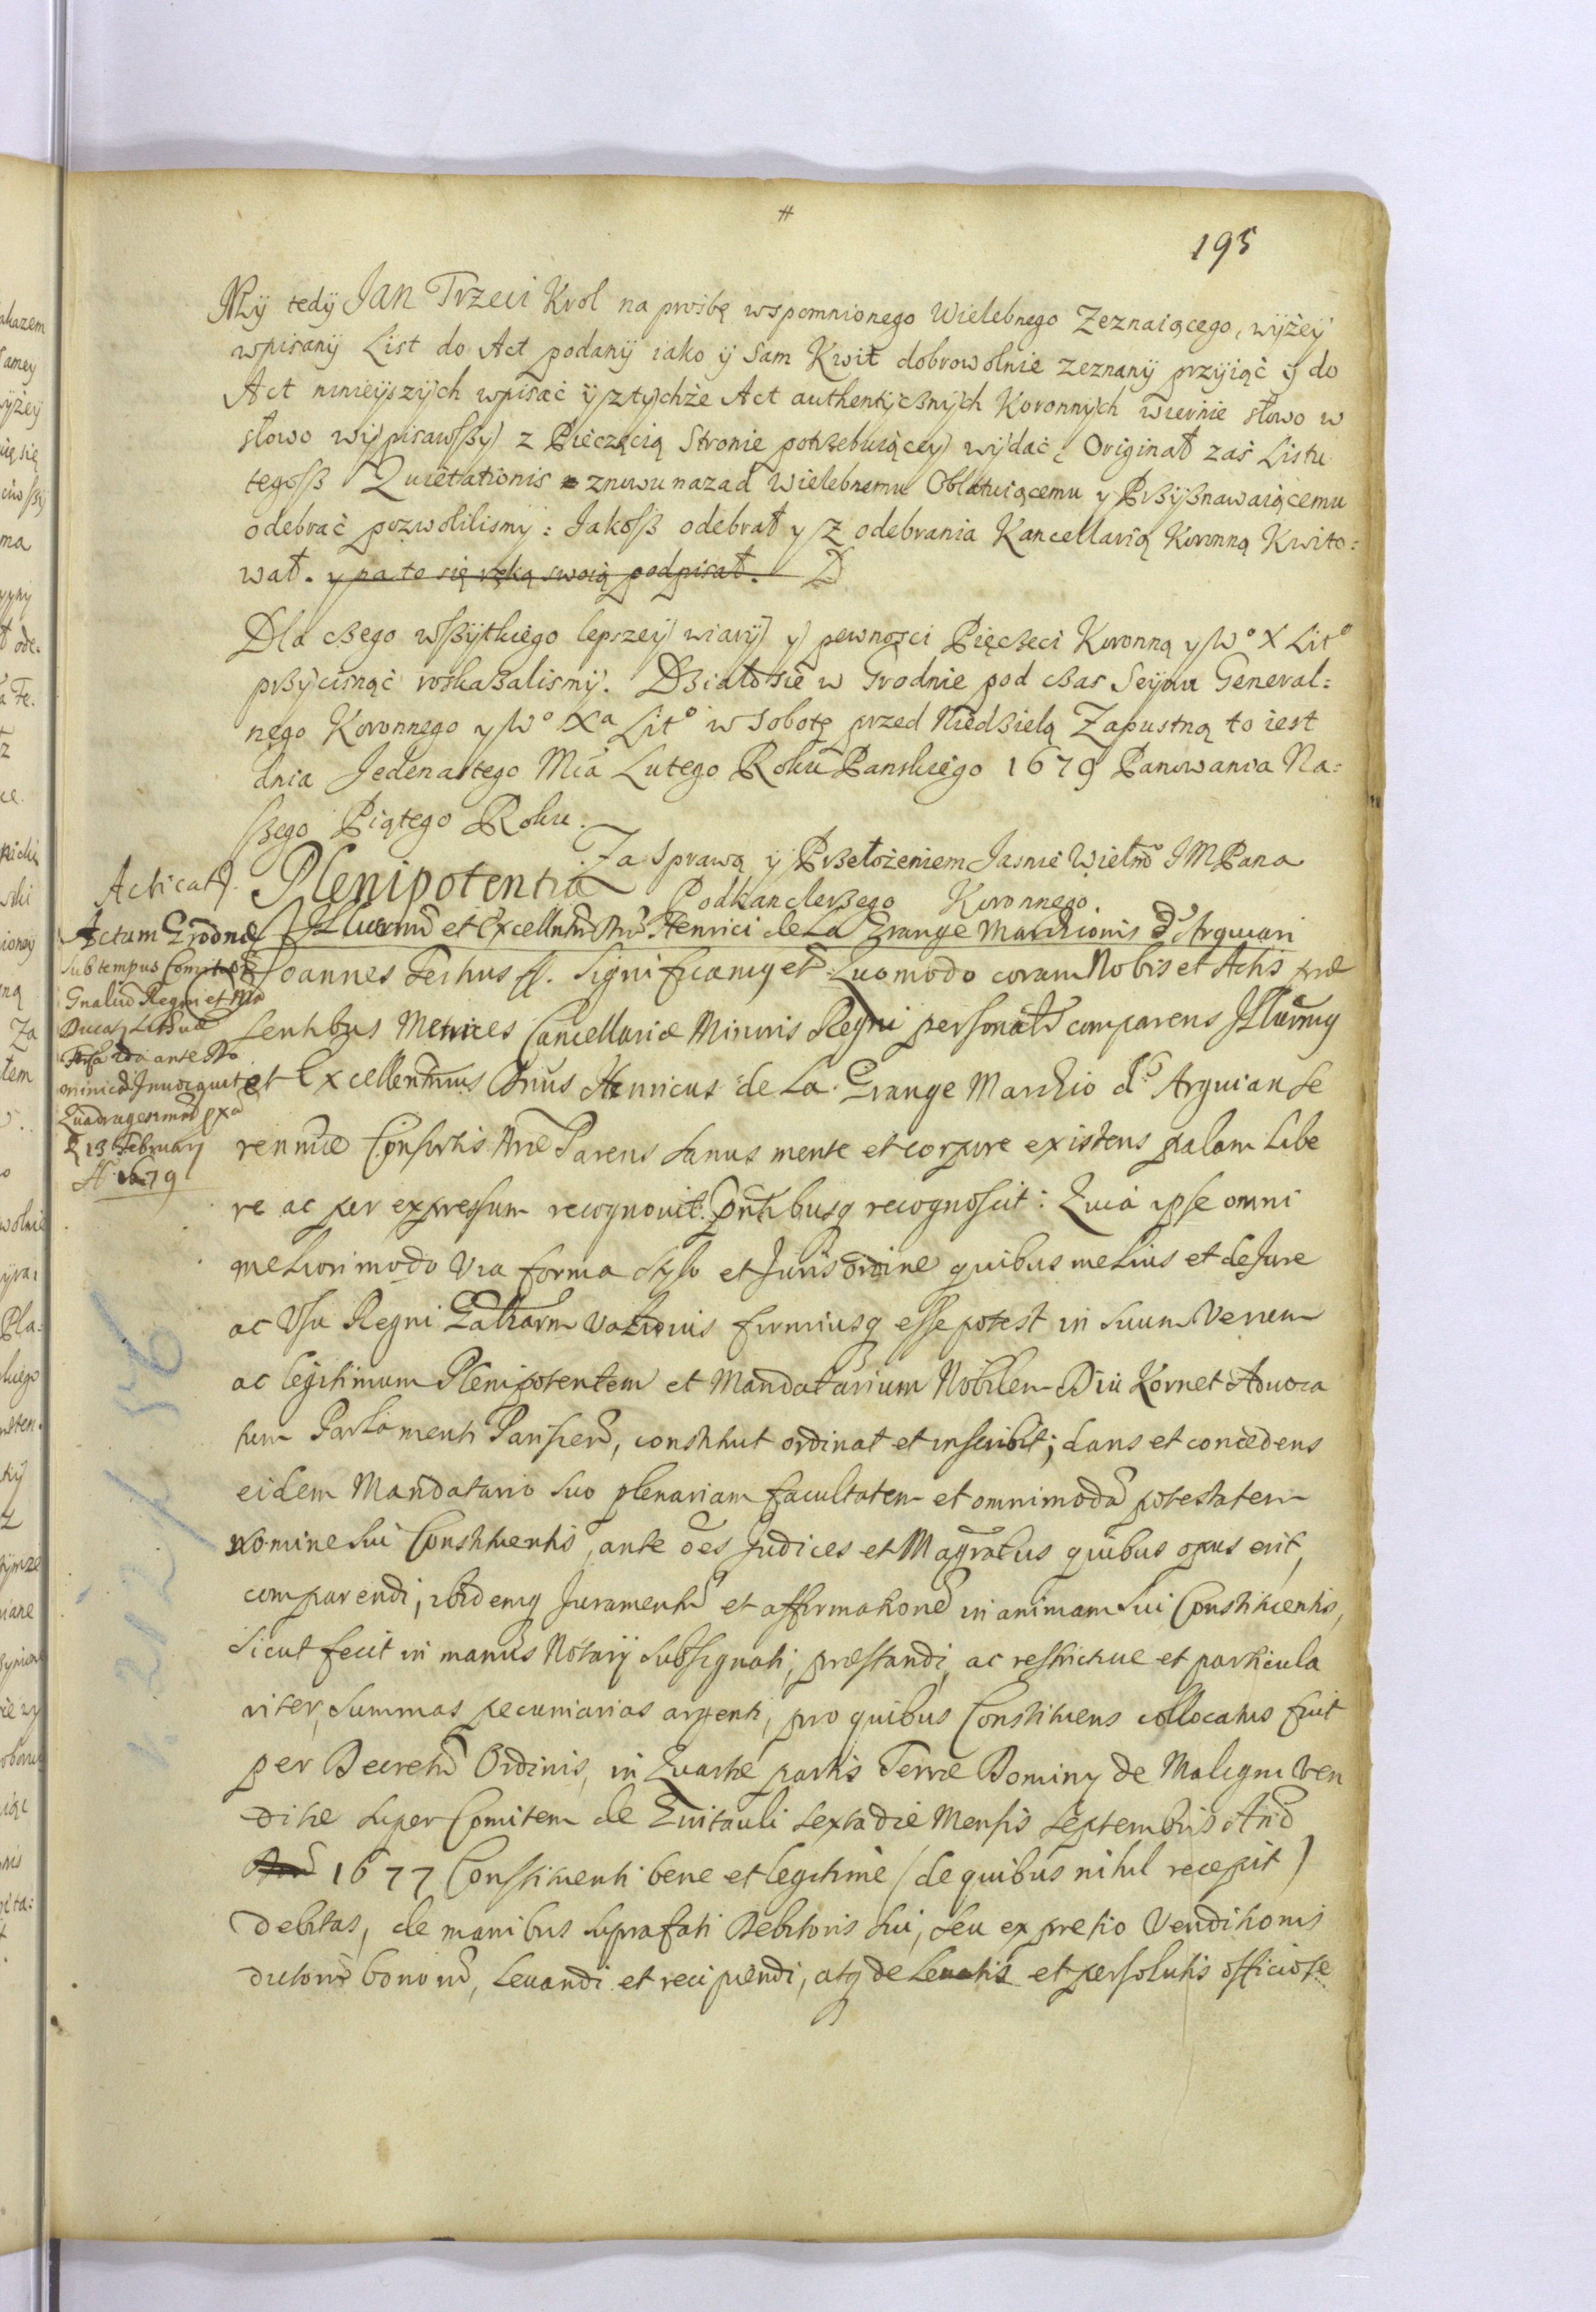 #
195
My tedÿ JAN Trzeci Krol na prośbę wspomnionego Wielebnego Zeznaiącego, wÿżeÿ
wpisanÿ List do Act podanÿ iako ÿ Sam Kwit dobrowolnie zeznanÿ przÿiąć ÿ do
Act ninieÿszÿch wpisać ÿ z tÿchże Act authentÿcßnÿch Koronnÿch wiernie słowo w
słowo wÿpisawßÿ z Pieczęcią Stronie potrzebuiąceÿ wÿdać; Originał zaś Listu
tegoß Quietationis znowu nazad Wielebnemu Oblatuiącemu y Prßÿßnawaiącemu
odebrać pozwolilismÿ: Jakoß odebrał y z odebrania Kancellarią Koronną Kwito:
wał. y na to się ręką swoią podpisał.
Dla cßego wßÿtkiego lepszeÿ wiarÿ ÿ pewnosci Pięcßeci Koronną y Wº X Litº
prßÿcisnąć roskaßalismÿ. Dßiało się w Grodnie pod cßas Seÿmu General:
nego Koronnego y Wº Xª Litº w Sobotę przed Niedßielą Zapustną to iest
dnia Jedenastego Mca Lutego Roku Panskiego 1679 Panowania Na:
ßego Piątego Roku.
Za Sprawą ÿ Prßełożeniem Jasnie Wielmo IMPana
Podkanclerßego Koronnego.
Acticat.
Plenipotentia
Illurmi et Excellmi Dni Henrici de La Grange Marchionis d'Arquian
Actum Grodnæ
sub tempus Comitior
Gnaliu Regni et Ma
Ducat Lithuæ
Feria 2da ante Do
minicã Inuocauit
Quadragesimæ pxa
d 13 February
A 1679
Joannes Tertius ff. Significamus etc Quomodo coram Nobis et Actis præ
sentibus Metrices Cancellariæ Minoris Regni personalr comparens Illurmus
et Excellentmus Dnus Henricus de La Grange Marchio d' Arquian Se
renmæ Consortis Nræ Parens sanus mente et corpore existens palam libe
re ac per expressum recognouit. pntibusq recognoscit: Quia ipse omni
meliori modo via forma stylo et Juris ordine quibus melius et de Jure
ac Usu Regni Galliarm validius firmiusq esse potest in suum verum
ac legitimum Plenipotentem et Mandatarium Nobilem Dnũ Kornet Aduoca
tum Parlamenti Parisien, constituit ordinat et inscribit; dans et concedens
eidem Mandatario suo plenariam facultatem et omnimodã potestatem
nomine sui Constituentis, ante oẽs Judices et Magratus quibus opus erit,
comparendi, ibidemq Juramentũ et affirmationẽ in animam sui Constituentis,
sicut fecit in manus Notarij subsignati, præstandi, ac restrictiue et particula
riter, summas pecuniarias argenti, pro quibus Constituens collocatus fuit
per Decretũ Ordinis, in Quartæ partis Terræ Dominy de Maligni ven
ditæ super Comitem de Quitauli sexta die Mensis Septembris Anõ
1677 Constituenti bene et legitime (de quibus nihil recepit)
debitas, de manibus suprafati Debitoris sui, seu ex pretio venditionis
dictorũ bonorũ, leuandi et recipiendi, atq de leuatis et persolutis officiose